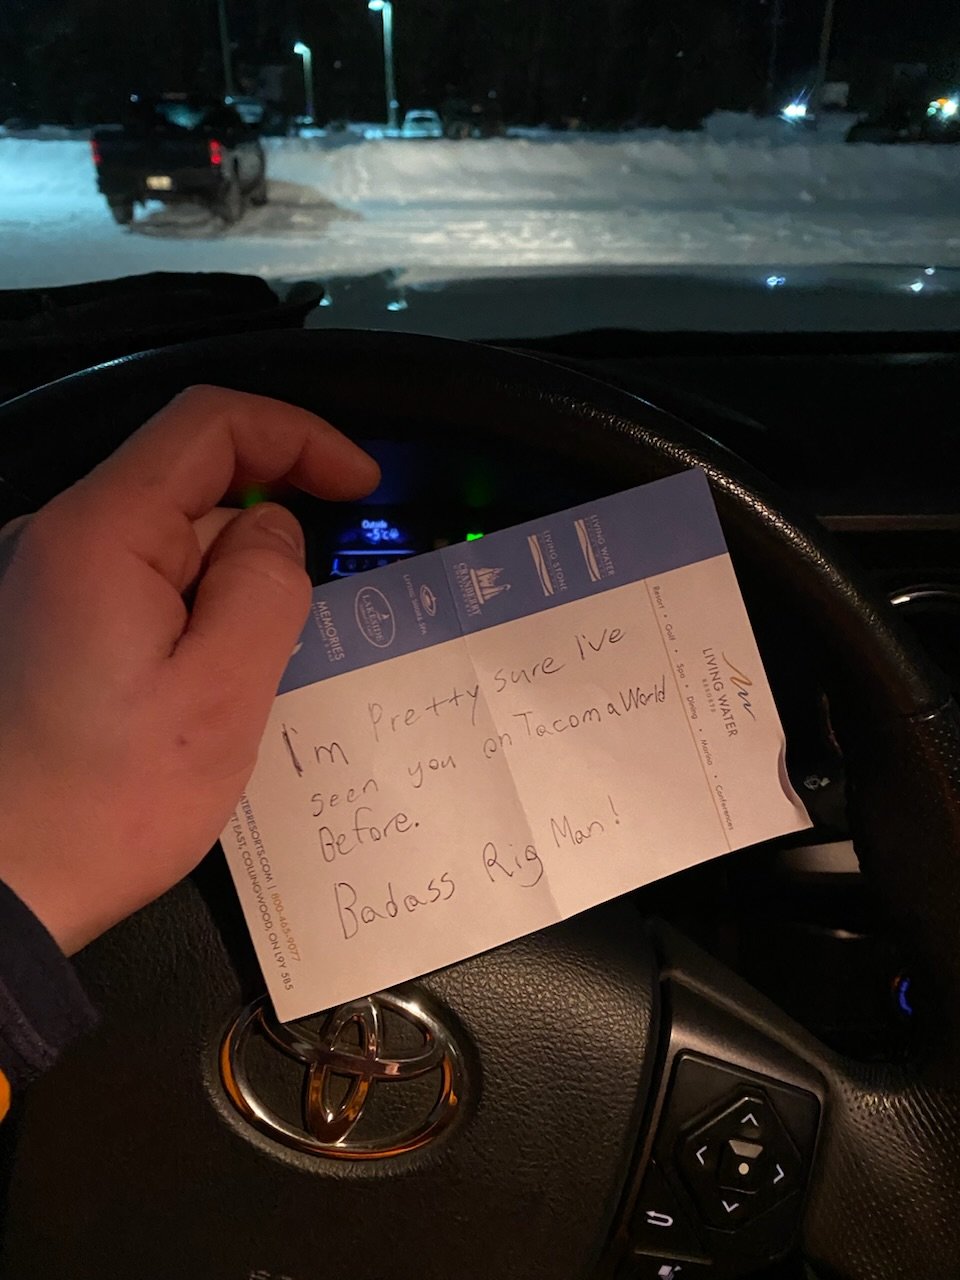 Outside
-5°C
LIVING WATER
LIVING STONE
CRANBERRY
LIVING SHORE SPA
LAKESIDE
MEMORIES
LIVING WATER
RESORTS
Resort • Golf • Spa • Dining • Marina • Conferences
I'm Pretty sure I've
seen you on TacomaWorld
Before.
Badass Rig Man!
WATERRESORTS.COM | 800-465-9077
EAST, COLLINGWOOD, ON L9Y 5B5